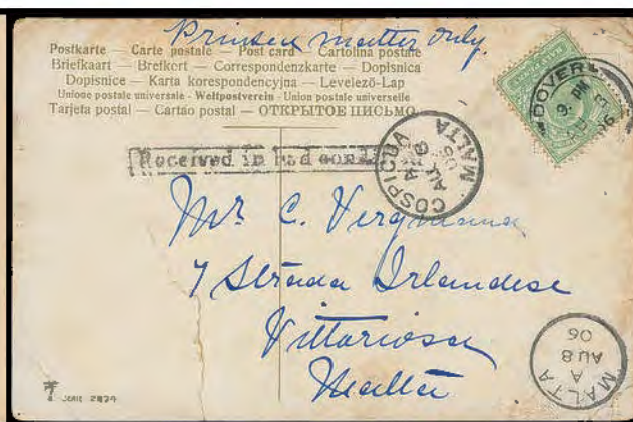 Printed matter only.
Postkarte — Carte postale — Post card — Cartolina postale
Briefkaart — Brefkort — Correspondenzkarte — Dopisnica
Dopisnice — Karta korespondencyjna — Levelező-Lap
Unione postale universale - Weltpostverein - Union postale universelle
Tarjeta postal — Cartão postal — ОТКРЫТОЕ ПИСЬМО
DOVER
9. PM
AU 3
06
Received in bad
COSPICUA
MALTA
AU 8
06
Mr C.
7 Strada Irlandese
Vittoriosa
Malta
MALTA
A
AU 8
06
SERIE 2874